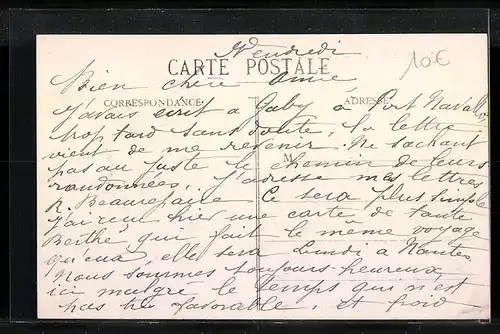 Vendredi
CARTE POSTALE
10€
Bien chère Amie
CORRESPONDANCE
ADRESSE
J'avais écrit a Gaby à Port Navallo
trop tard sans doute, la lettre
vient de me revenir. Ne sachant
M
pas au juste le chemin de leurs
randonnées, j'adresse mes lettres
R. Beaurepaire ce sera plus simple
J'ai reçu hier une carte de tante
Berthe qui fait le même voyage
qu'eux, elle sera Lundi à Nantes
Nous sommes toujours heureux
ici malgré le temps qui n'est
pas très favorable, et froid